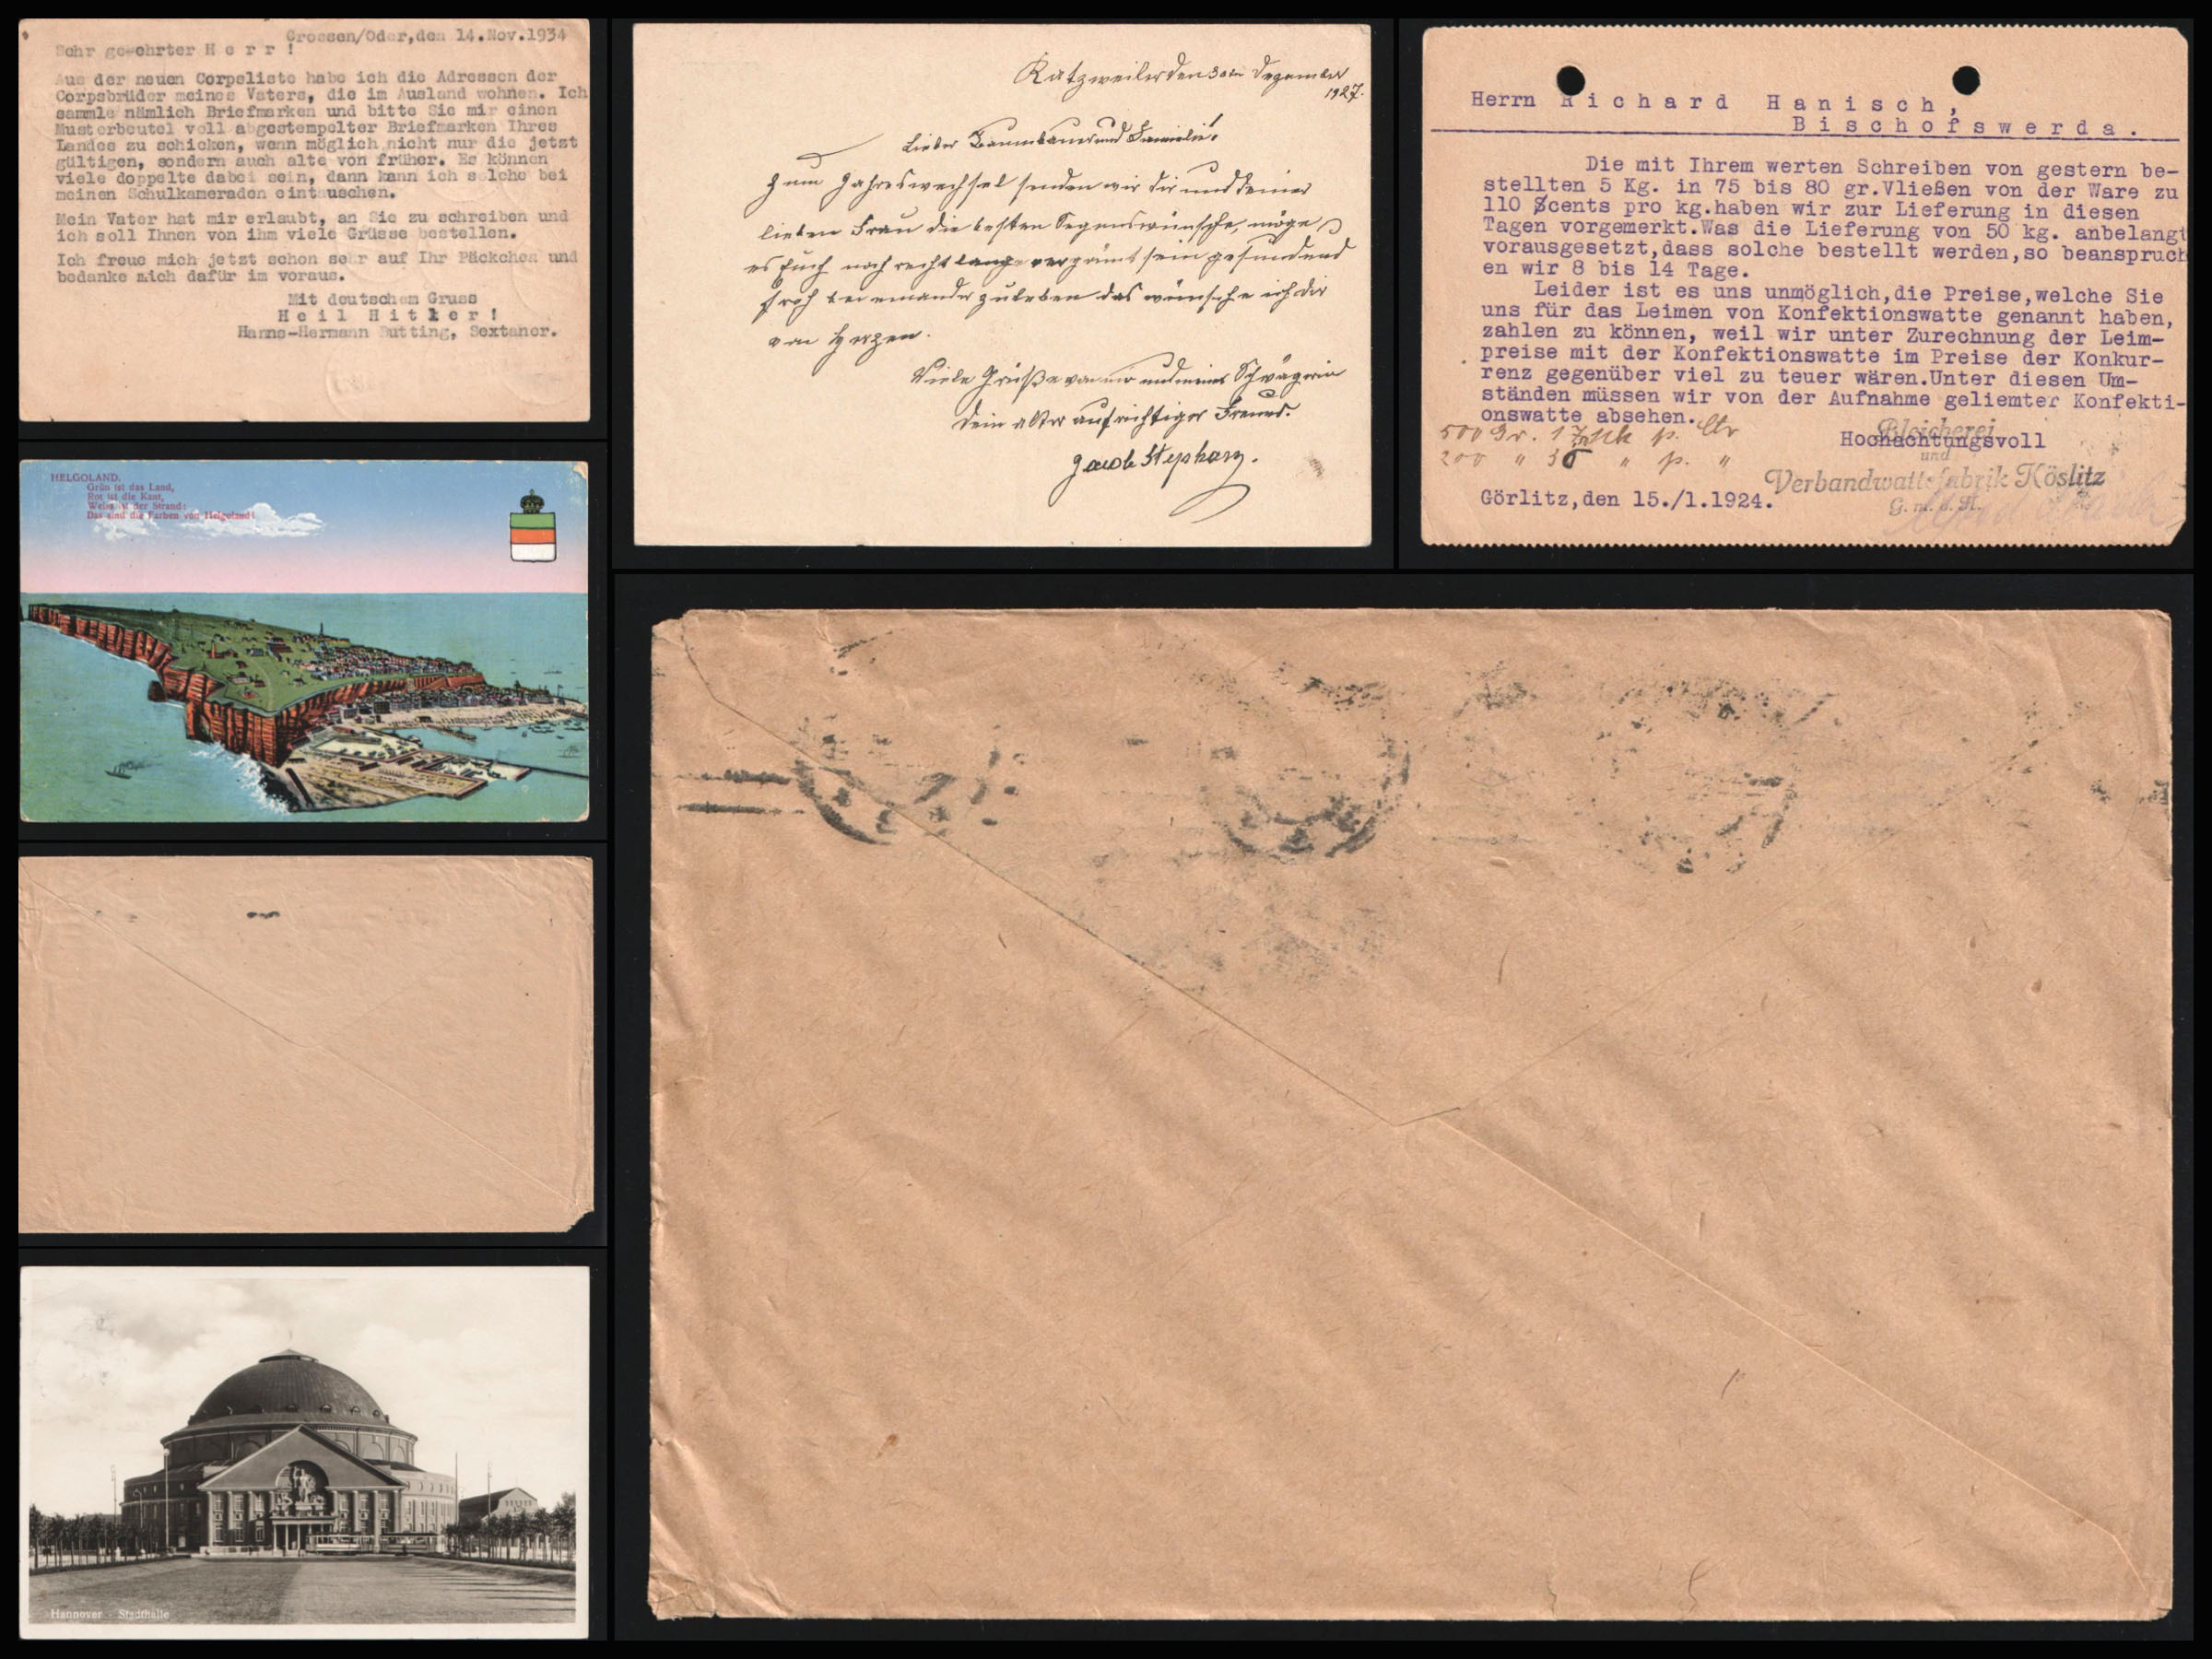 Crossen/Oder,den 14.Nov.1934
Sehr geehrter H e r r !
Aus der neuen Corpsliste habe ich die Adressen der
Corpsbrüder meines Vaters, die im Ausland wohnen. Ich
sammle nämlich Briefmarken und bitte Sie mir einen
Musterbeutel voll abgestempelter Briefmarken Ihres
Landes zu schicken, wenn möglich nicht nur die jetzt
gültigen, sondern auch alte von früher. Es können
viele doppelte dabei sein, dann kann ich solche bei
meinen Schulkameraden eintauschen.
Mein Vater hat mir erlaubt, an Sie zu schreiben und
ich soll Ihnen von ihm viele Grüsse bestellen.
Ich freue mich jetzt schon sehr auf Ihr Päckchen und
bedanke mich dafür im voraus.
Mit deutschem Gruss
H e i l  H i t l e r !
Hanns-Hermann Butting, Sextaner.
Katzweiler den 30ten Dezember
1927.
Lieber und Familie!
Zum Jahreswechsel senden wir dir und deiner
lieben Frau die besten Segenswünsche, möge
es Euch noch recht lange vergönnt sein gesund und
froh bei einander zu leben das wünsche ich dir
von Herzen.
Viele Grüße von mir und meiner Schwägerin
Dein alter aufrichtiger Freund.
Jacob Stephany.
Herrn R i c h a r d  H a n i s c h ,
B i s c h o f s w e r d a .
Die mit Ihrem werten Schreiben von gestern be-
stellten 5 Kg. in 75 bis 80 gr.Vließen von der Ware zu
110 $cents pro kg.haben wir zur Lieferung in diesen
Tagen vorgemerkt.Was die Lieferung von 50 kg. anbelangt
vorausgesetzt,dass solche bestellt werden,so beanspruch
en wir 8 bis 14 Tage.
Leider ist es uns unmöglich,die Preise,welche Sie
uns für das Leimen von Konfektionswatte genannt haben,
zahlen zu können, weil wir unter Zurechnung der Leim-
preise mit der Konfektionswatte im Preise der Konkur-
renz gegenüber viel zu teuer wären.Unter diesen Um-
ständen müssen wir von der Aufnahme geliemter Konfekti-
onswatte absehen.
500 Gr. p. Ctr
200 " 30 " p. "
Hochachtungsvoll
Bleicherei
und
Verbandwattefabrik Köslitz
G. m. b. H.
Görlitz,den 15./1.1924.
HELGOLAND.
Grün ist das Land,
Rot ist die Kant,
Weiss ist der Strand:
Das sind die Farben von Helgoland!
Hannover - Stadthalle